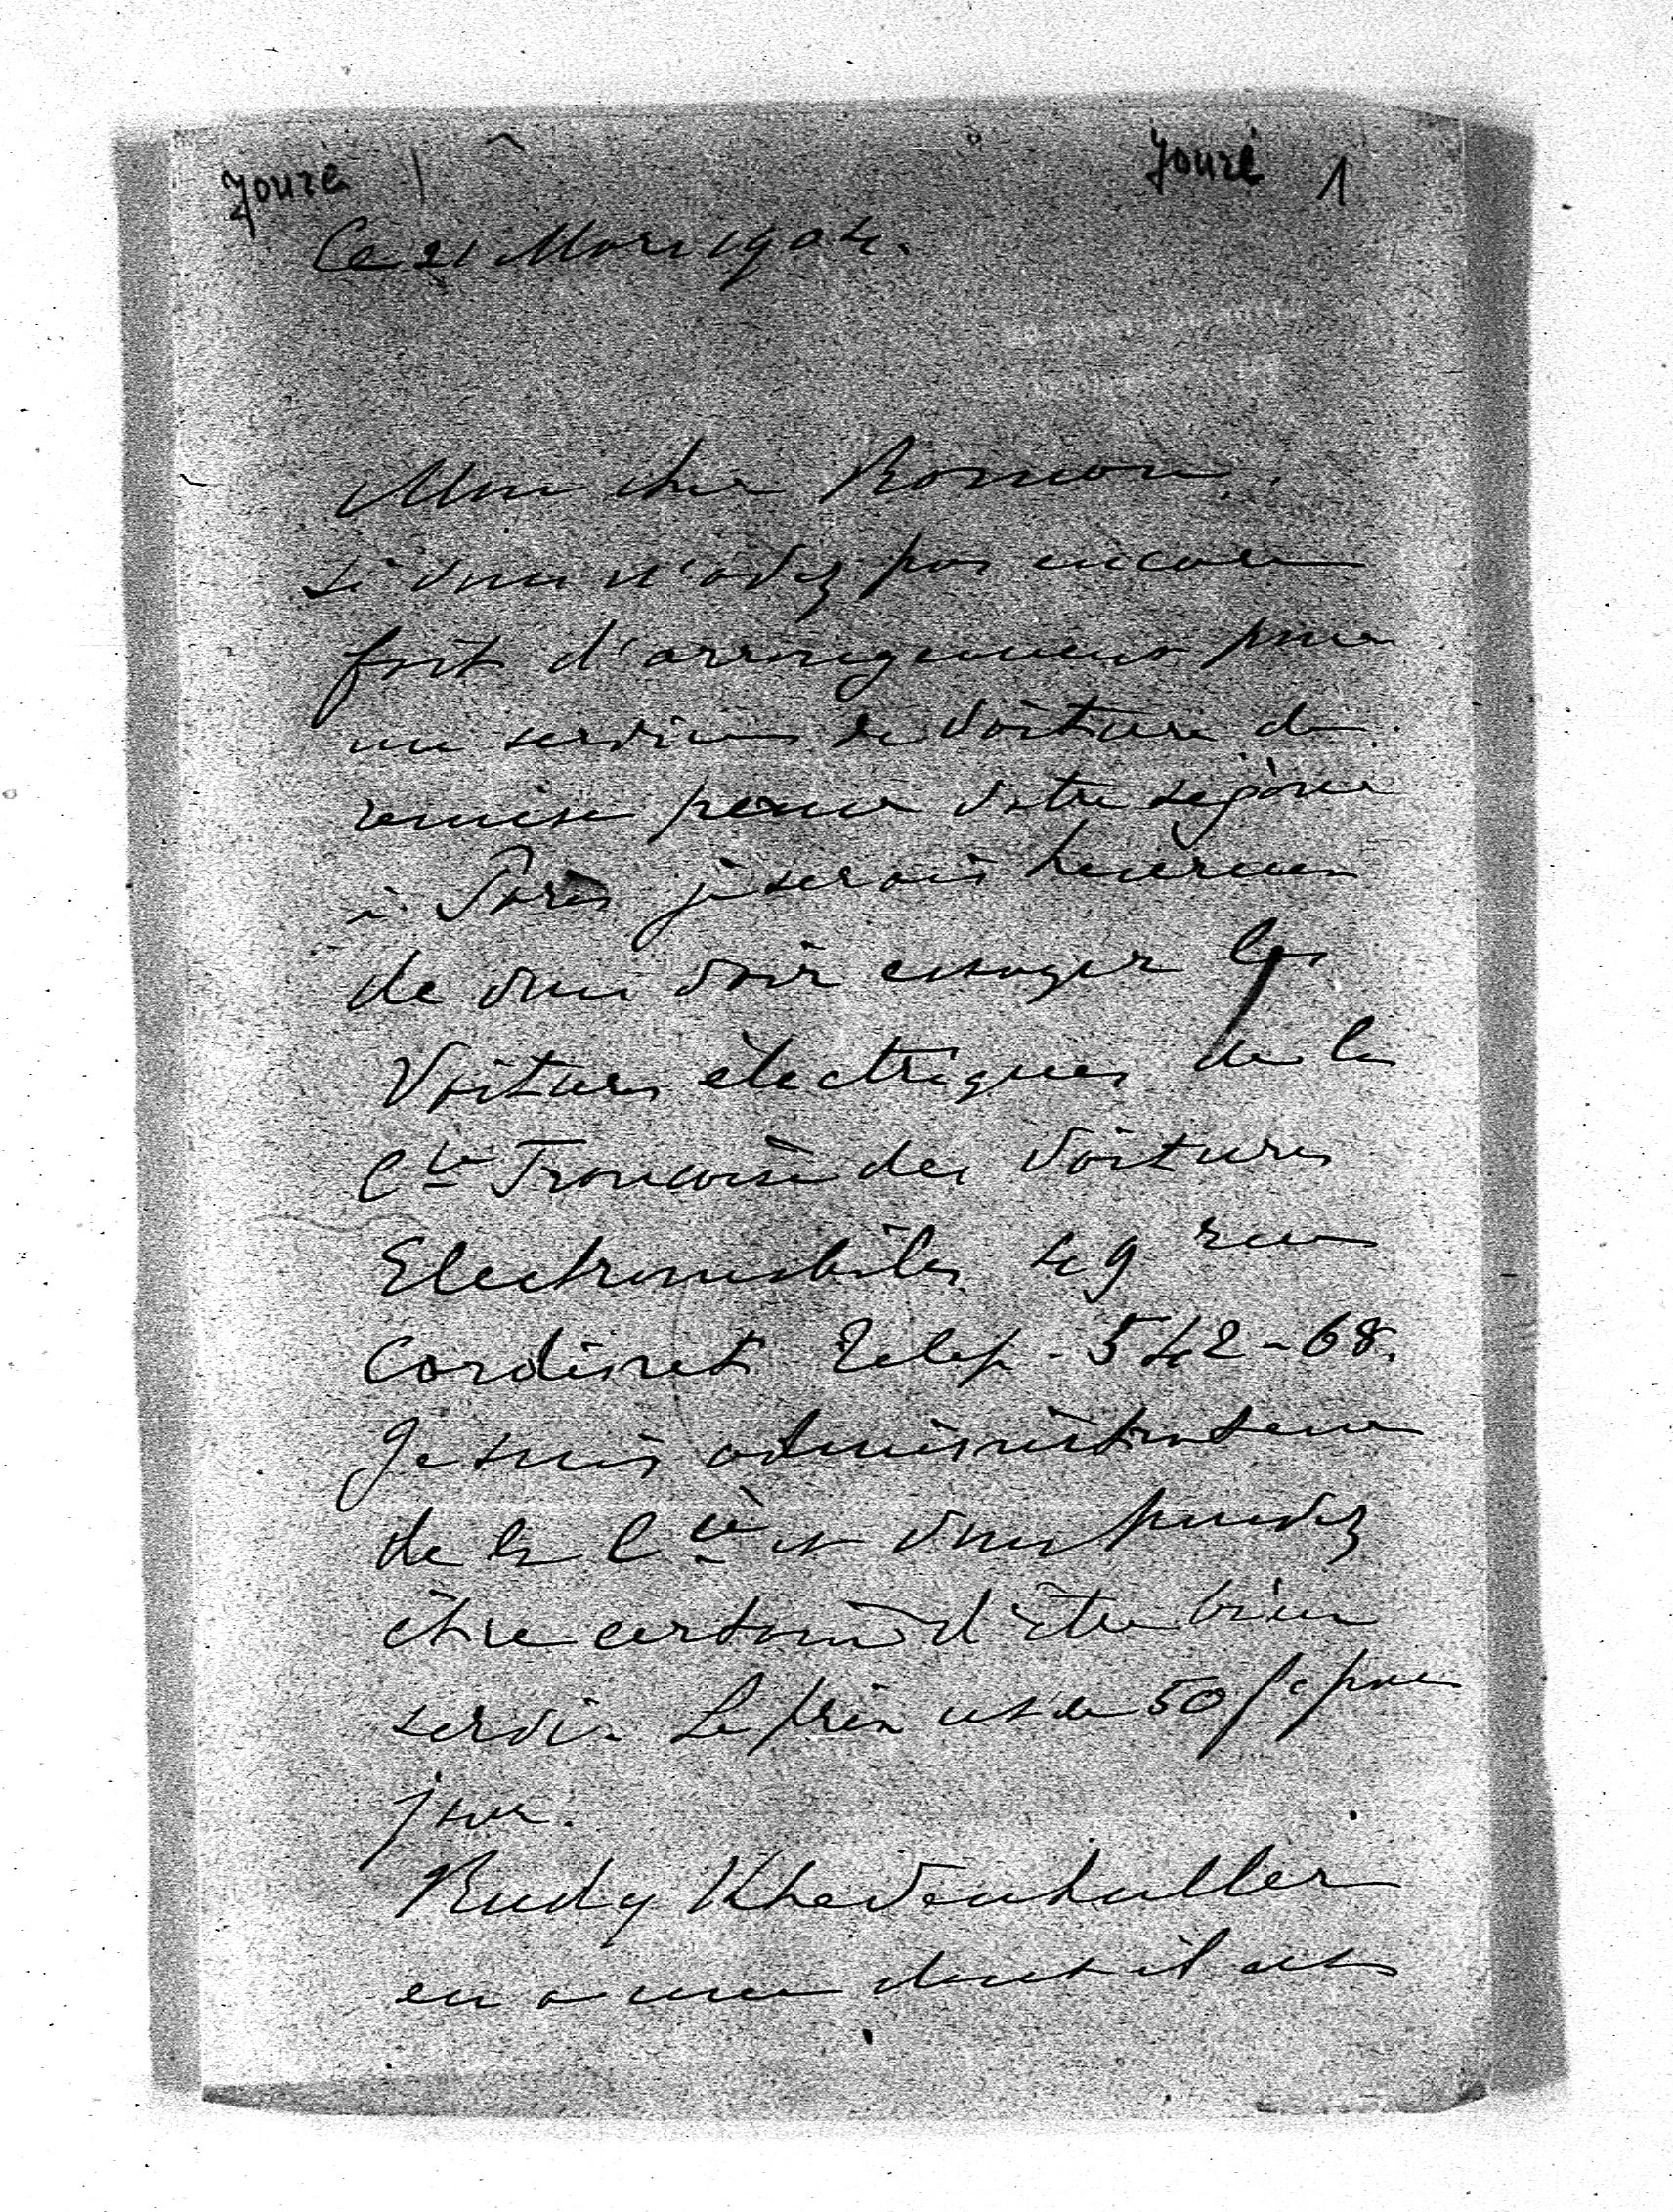 Jouré Jouré 1
Ce 21 Mars 1904.
Mon cher Roman,
si vous n'avez pas encore
fait d'arrangement pour
un service de voiture de
remise pour votre séjour
à Paris je serais heureux
de vous voir essayer les
Voitures électriques de la
Cie Francaise des Voitures
Electromobiles 49 rue
Cardinet Telep - 542-68.
Je suis administrateur
de la Cie et vous pouvez
être certain d'être bien
servi. Le prix est de 50 fc par
jour.
Rudy Khevenhuller
en a une dont il est